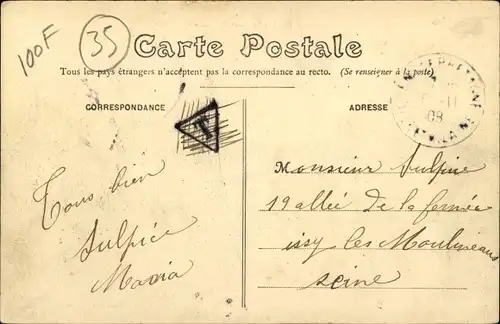 100F
35
Carte Postale
Tous les pays étrangers n'acceptent pas la correspondance au recto. (Se renseigner à la poste)
CORRESPONDANCE
ADRESSE
T
08
Tous bien
Sulpice
Maria
Monsieur Sulpice
19 allée de la ferme
issy les Moulineaux
seine